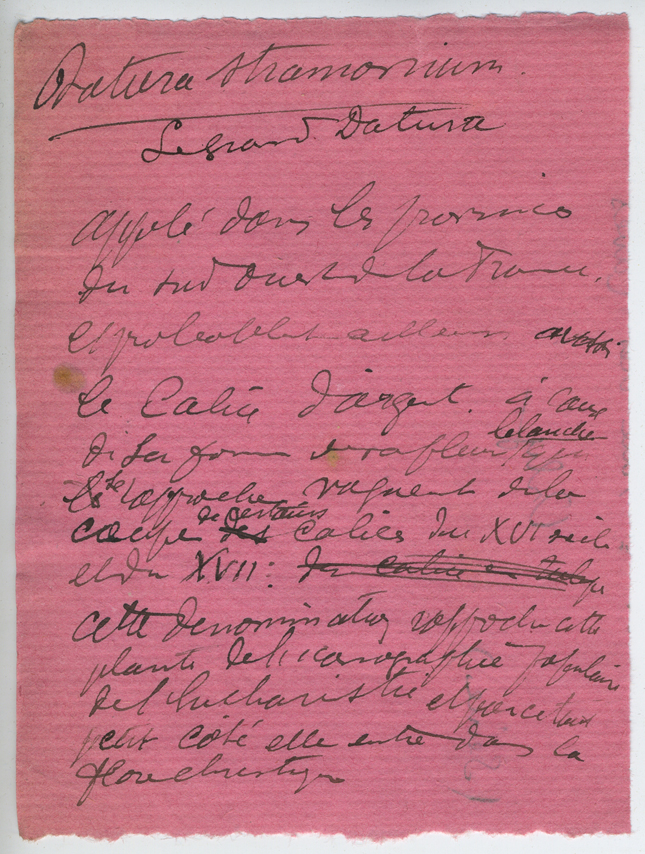 Datura stramonium.
Le grand Datura
appelé dans les provinces
du sud ouest de la France,
et probablemt ailleurs.
le Calice d'argent. à cause
de sa forme de sa fleur blanche qui
s'approche vaguement de la
coupe des de certains calices du XVI siècle
et du XVII: du calice en tulipe
cette denomination rapproche cette
plante de l'iconographie populaire
de l'Eucharistie et par ce tout
petit côté elle entre dans la
flore christique